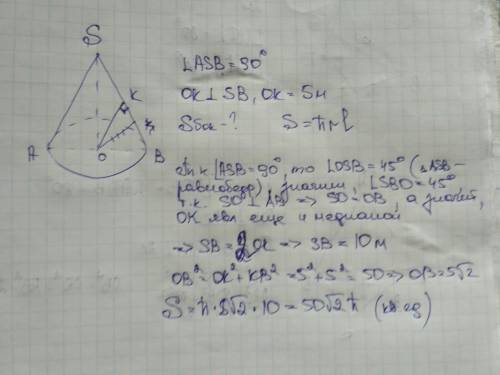 S
K
A
O
B
∠ASB=90°
OK⊥SB, OK=5м
Sбок-? S=πrl
Т.к. ∠ASB=90°, то ∠OSB=45° (ΔASB-
равнобедр), значит, ∠SBO=45°
т.к. SO⊥AB => SO=OB, а значит,
OK явл. еще и медианой
=> SB=2OK => SB=10м
OB²=OK²+KB²=5²+5²=50=>OB=5√2
S=π·5√2·10=50√2π (кв.ед)